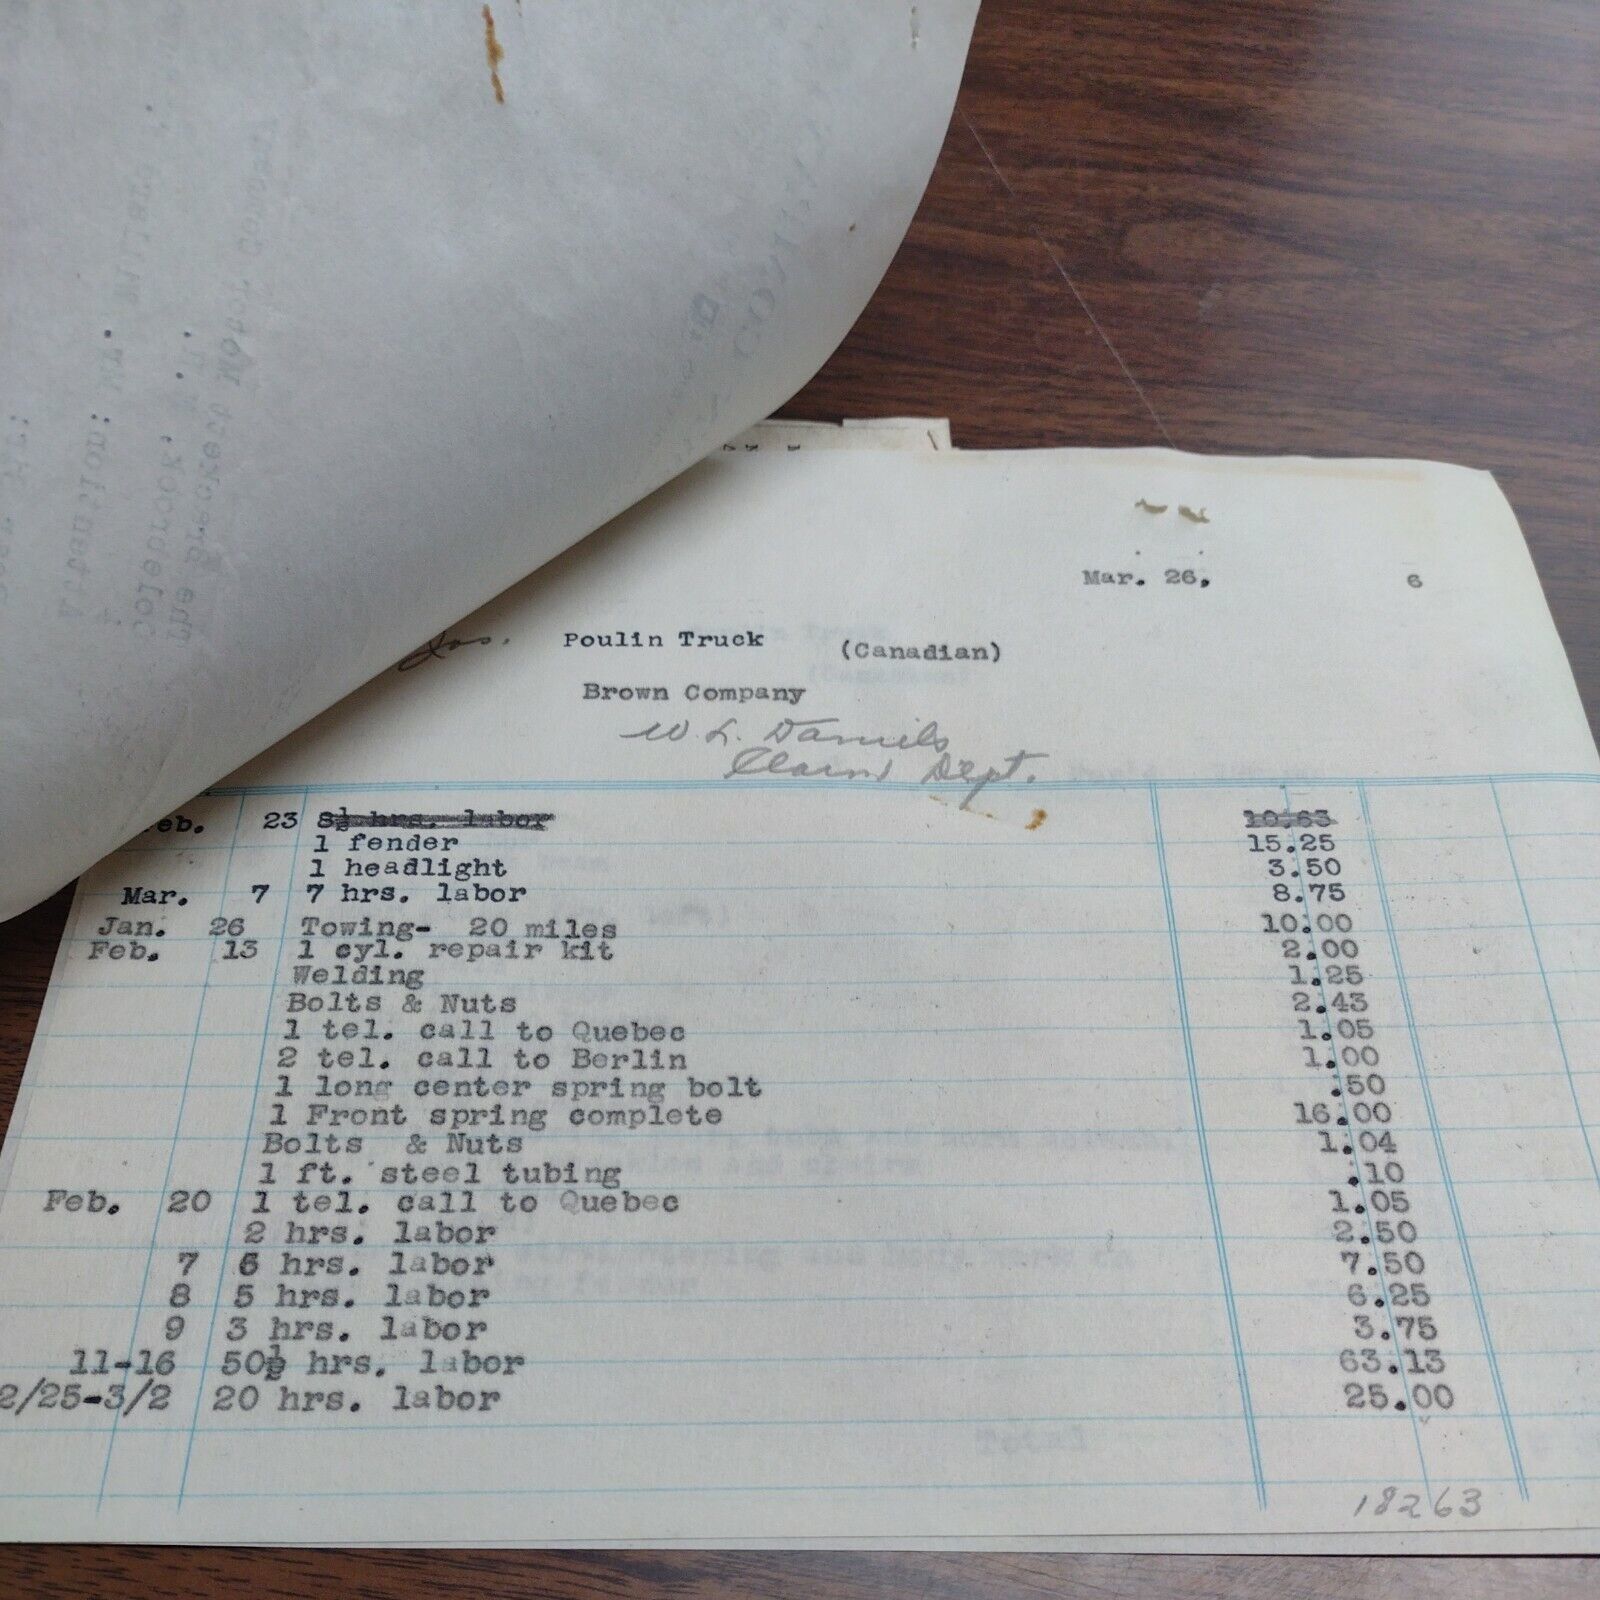 Mar. 26, 6
Jos. Poulin Truck (Canadian)
Brown Company
W. L. Daniels
Claim Dept.
Feb. 23 8½ hrs. labor 10.63
1 fender 15.25
1 headlight 3.50
Mar. 7 7 hrs. labor 8.75
Jan. 26 Towing- 20 miles 10.00
Feb. 13 1 cyl. repair kit 2.00
Welding 1.25
Bolts & Nuts 2.43
1 tel. call to Quebec 1.05
2 tel. call to Berlin 1.00
1 long center spring bolt .50
1 Front spring complete 16.00
Bolts & Nuts 1.04
1 ft. steel tubing .10
Feb. 20 1 tel. call to Quebec 1.05
2 hrs. labor 2.50
7 6 hrs. labor 7.50
8 5 hrs. labor 6.25
9 3 hrs. labor 3.75
11-16 50½ hrs. labor 63.13
2/25-3/2 20 hrs. labor 25.00
Total
18263